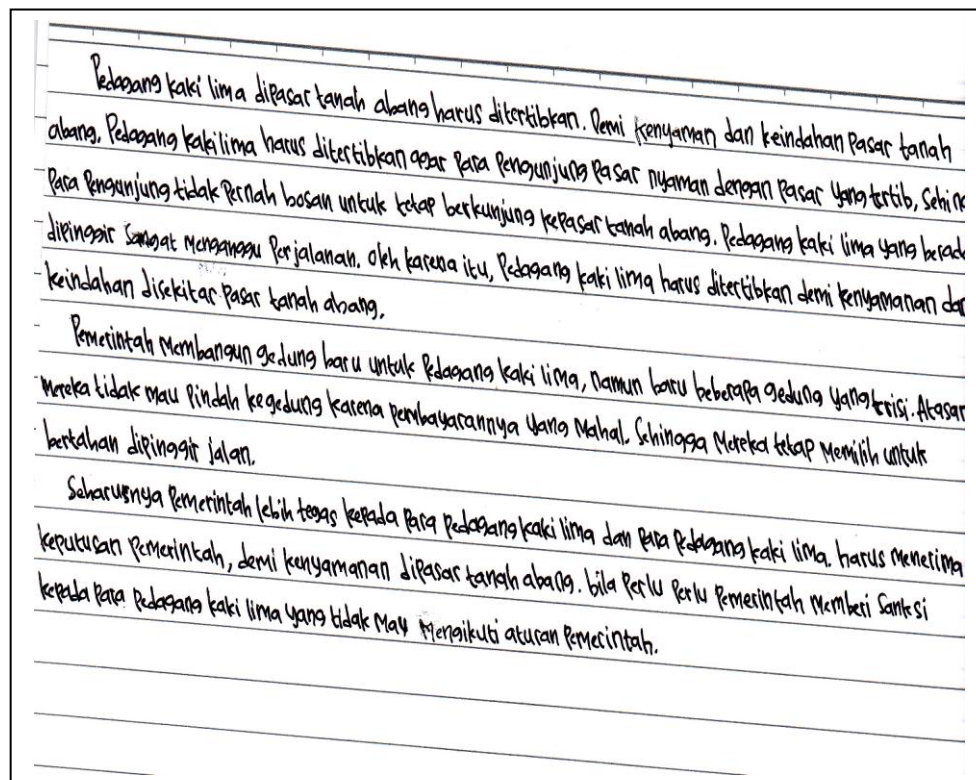 Pedagang kaki lima dipasar tanah abang harus ditertibkan. Demi kenyaman dan keindahan pasar tanah
abang. Pedagang kaki lima harus ditertibkan agar para pengunjung pasar nyaman dengan pasar yang tertib, sehing
para pengunjung tidak pernah bosan untuk tetap berkunjung kepasar tanah abang. Pedagang kaki lima yang berada
dipinggir sangat menganggu perjalanan. oleh karena itu, pedagang kaki lima harus ditertibkan demi kenyamanan dan
keindahan disekitar pasar tanah abang.
Pemerintah membangun gedung baru untuk pedagang kaki lima, namun baru beberapa gedung yang trisi. Atasan
mereka tidak mau pindah kegedung karena pembayarannya yang mahal. Sehingga mereka tetap memilih untuk
bertahan dipinggir jalan.
Seharusnya pemerintah lebih tegas kepada para pedagang kaki lima dan para pedagang kaki lima. harus menerima
keputusan pemerintah, demi kenyamanan dipasar tanah abang. bila perlu perlu pemerintah memberi sanksi
kepada para pedagang kaki lima yang tidak mau mengikuti aturan pemerintah.